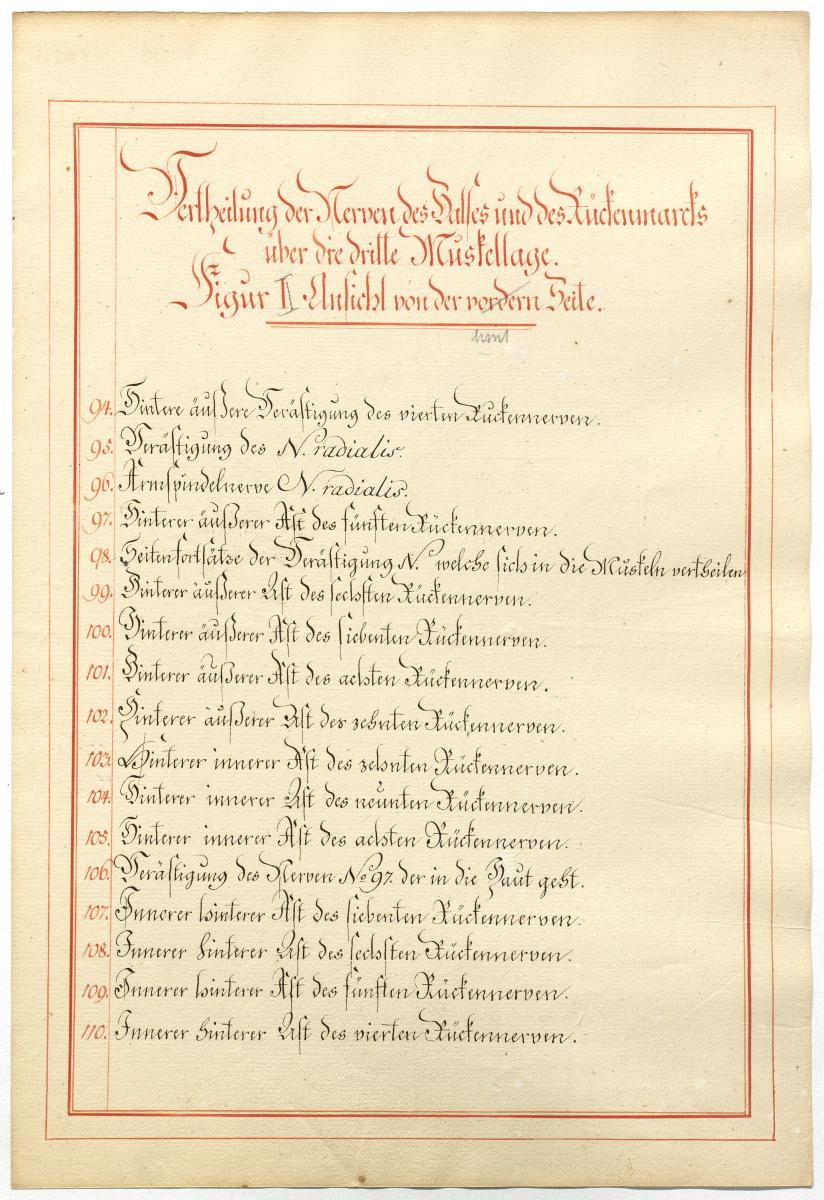 Vertheilung der Nerven des Halses und des Rückenmarcks
über die dritte Muskellage.
Figur II Ansicht von der vordern Seite.
hint
94. Hintere äußere Verästigung des vierten Ruckennerven.
95. Verästigung des N. radialis.
96. Armspindelnerve N. radialis.
97. Hinterer äußerer Ast des fünften Rückennerven.
98. Seitenfortsätze der Verästigung N.º welche sich in die Muskeln vertheilen
99. Hinterer äußerer Ast des sechsten Rückennerven.
100. Hinterer äußerer Ast des siebenten Rückennerven.
101. Hinterer äußerer Ast des achten Rückennerven.
102. Hinterer äußerer Ast des zehnten Rückennerven.
103. Hinterer innerer Ast des zehnten Rückennerven.
104. Hinterer innerer Ast des neunten Rückennerven.
105. Hinterer innerer Ast des achten Rückennerven.
106. Verästigung des Nerven No 97. der in die Haut geht.
107. Innerer hinterer Ast des siebenten Rückennerven.
108. Innerer hinterer Ast des sechsten Rückennerven.
109. Innerer hinterer Ast des fünften Rückennerven.
110. Innerer hinterer Ast des vierten Rückennerven.